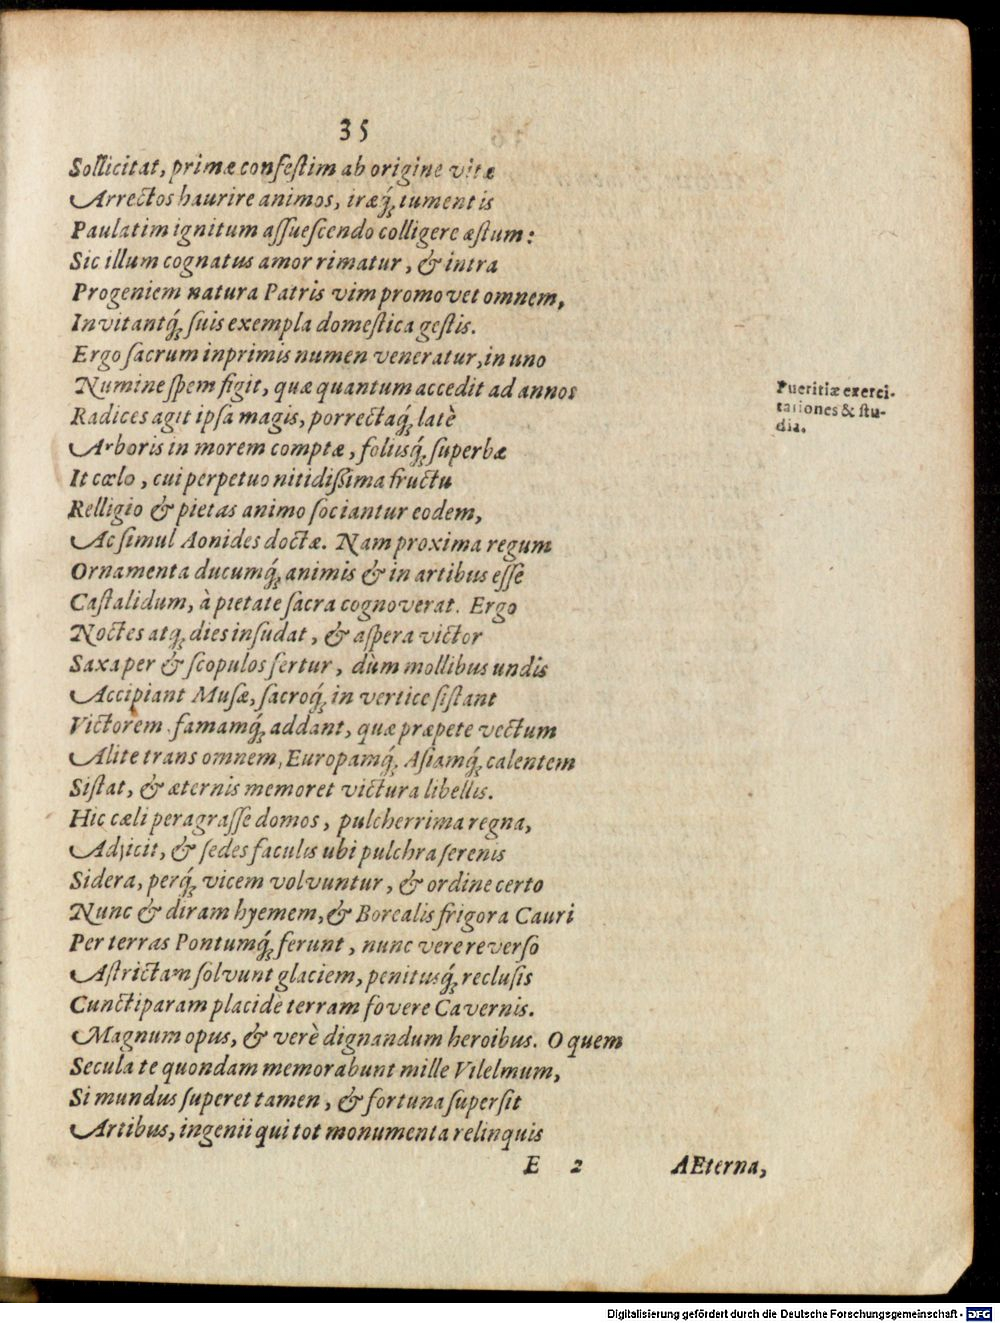 35
Sollicitat, primæ confestim ab origine vitæ
Arrectos haurire animos, iræq́; tumentis
Paulatim ignitum assuescendo colligere æstum:
Sic illum cognatus amor rimatur, & intra
Progeniem natura Patris vim promovet omnem,
Invitantq́; suis exempla domestica gestis.
Ergo sacrum inprimis numen veneratur, in uno
Numine spem figit, quæ quantum accedit ad annos
Radices agit ipsa magis, porrectaq́; latè
Arboris in morem comptæ, foliisq́; superbæ
It cœlo, cui perpetuo nitidissima fructu
Relligio & pietas animo sociantur eodem,
Ac simul Aonides doctæ. Nam proxima regum
Ornamenta ducumq́; animis & in artibus esse
Castalidum, à pietate sacra cognoverat. Ergo
Noctes atq; dies insudat, & aspera victor
Saxa per & scopulos fertur, dùm mollibus undis
Accipiant Musæ, sacroq́; in vertice sistant
Victorem famamq́; addant, quæ præpete vectum
Alite trans omnem, Europamq́; Asiamq́; calentem
Sistat, & æternis memoret victura libellis.
Hic cæli peragrasse domos, pulcherrima regna,
Adjicit, & sedes faculis ubi pulchra serenis
Sidera, perq́; vicem volvuntur, & ordine certo
Nunc & diram hyemem, & Borealis frigora Cauri
Per terras Pontumq́; ferunt, nunc vere reverso
Astrictam solvunt glaciem, penitusq́; reclusis
Cunctiparam placidè terram fovere Cavernis.
Magnum opus, & verè dignandum heroibus. O quem
Secula te quondam memorabunt mille Vilelmum,
Si mundus superet tamen, & fortuna supersit
Artibus, ingenii qui tot monumenta relinquis
E 2 AEterna,
Pueritiæ exerci-
tationes & stu-
dia.
Digitalisierung gefördert durch die Deutsche Forschungsgemeinschaft - DFG